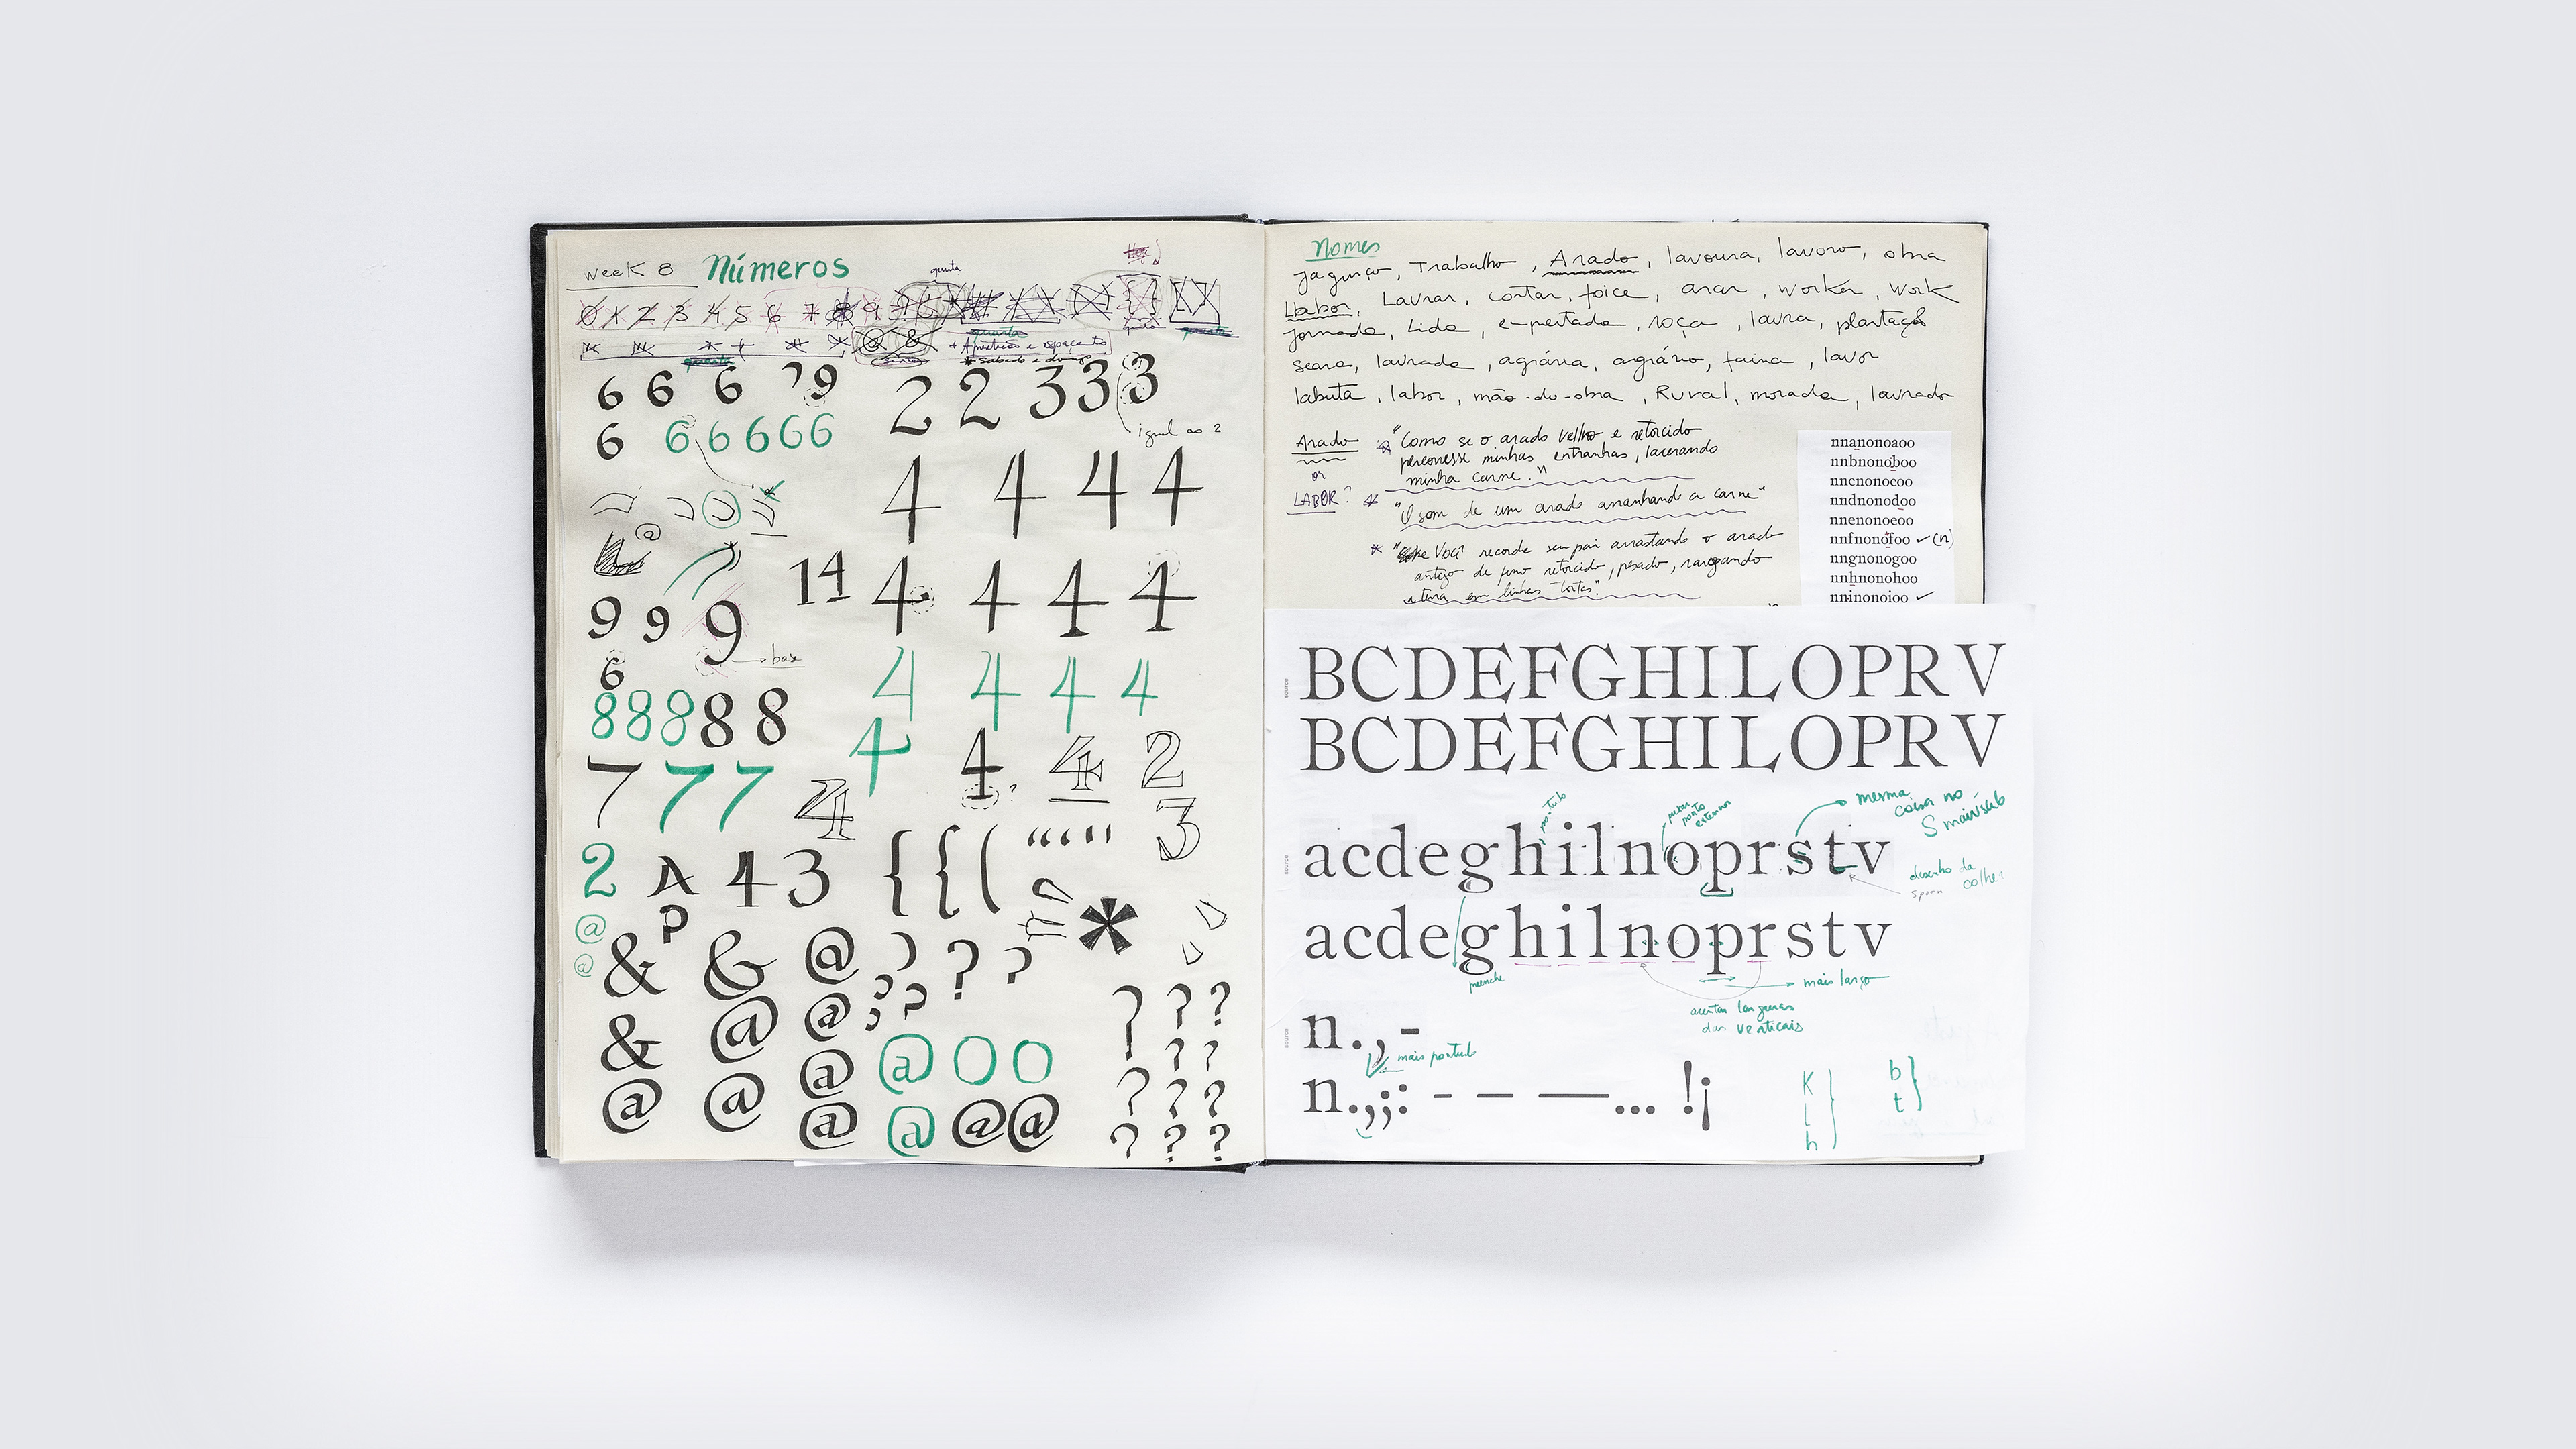 week 8 Números
quinta
0 1 2 3 4 5 6 7 8 9
quarta
sábado e
6 6 6 7 9
2 2 3 3 3
6 6 6 6 6 6
igual ao 2
4 4 4 4
@
9 9 9
14 4 4 4 4
base
6
8 8 8 8 8
4 4 4 4
7 7 7
4 4 4 4 2
3
2 A 4 3 { { (
@ P *
@ & & @ ? ? ?
& @ @ ? ? ? ?
@ @ @ @ O O
@ @ @ @
? ? ?
? ?
? ? ?
? ? ?
Nomes
Jagunço, Trabalho, Arado, lavoura, lavoro, obra
Labor, Lavrar, cortar, foice, arar, worker, work
Jornada, Lida, empreitada, roça, lavra, plantação
seara, lavrada, agrária, agrário, faina, lavor
labuta, labor, mão-de-obra, Rural, morada, lavrado
Arado
or
LABOR?
* "Como se o arado velho e retorcido
percorresse minhas entranhas, lacerando
minha carne."
* "O som de um arado arranhando a carne"
* Você recorde seu pai arrastando o arado
antigo de pesado, rasgando
a terra em linhas tortas."
nnanonoaoo
nnbnonoboo
nncnonocoo
nndnonodoo
nnenonoeoo
nnfnonofoo ✓ (n)
nngnonogoo
nnhnonohoo
nninonoioo ✓
source
BCDEFGHILOPRV
BCDEFGHILOPRV
mesma
coisa no
S maiúsculo
source
acdeghilnoprstv
desenho da
colher
spoon
acdeghilnoprstv
preenche
mais largo
larguras
das verticais
source
n.,-
mais pontudo
n.,;: - – —... !¡
K
l
h
b
t